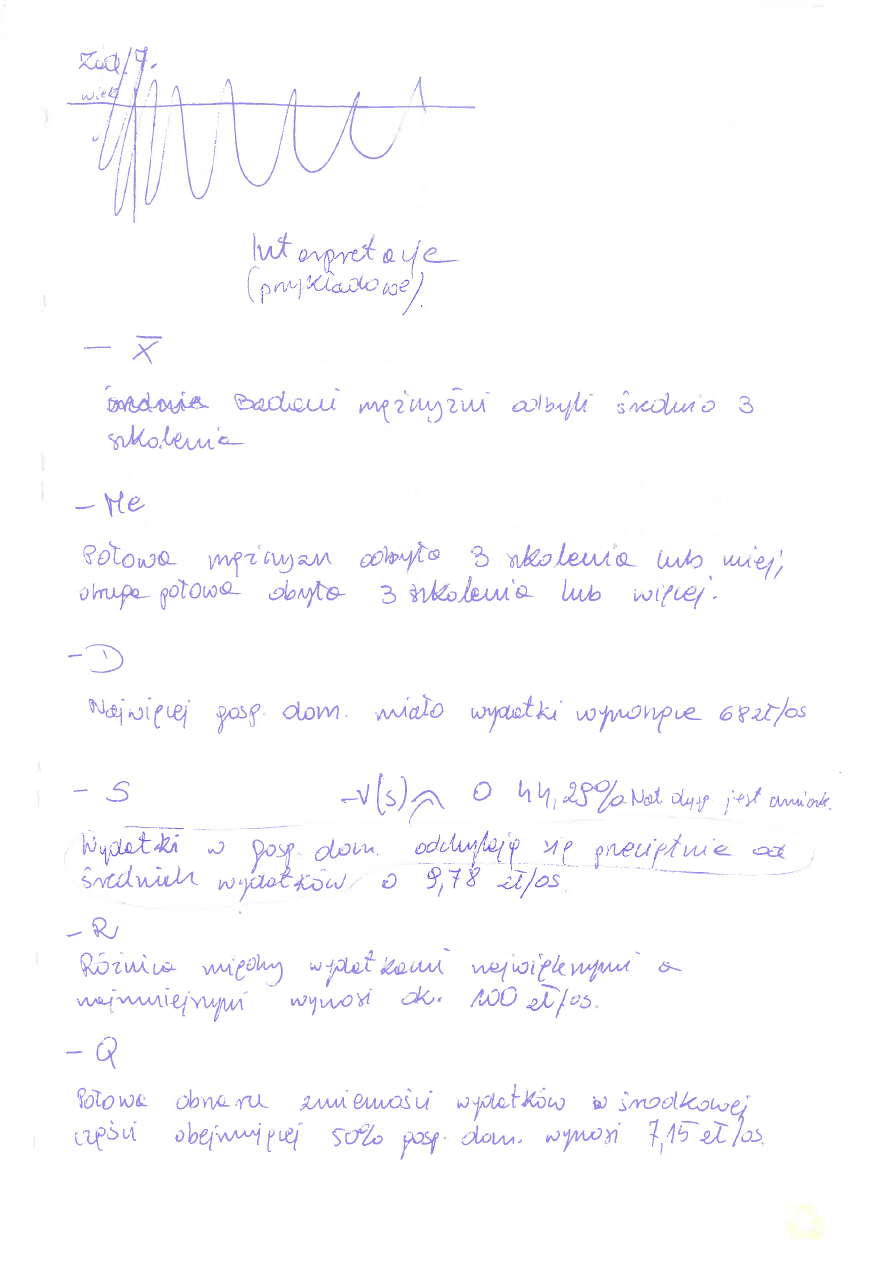 Zad 7.
wiek
Interpretacje
(przykładowe).
– X̄
średnia Badani mężczyźni odbyli średnio 3
szkolenia
– Me
Połowa mężczyzn odbyła 3 szkolenia lub mniej,
druga połowa obyła 3 szkolenia lub więcej.
– D
Najwięcej gosp. dom. miało wydatki wynoszące 68 zł/os
– S –V(s) O 44,29% Nat. dysp jest umiark.
Wydatki w gosp. dom. odchylają się przeciętnie od
średnich wydatków o 9,78 zł/os
– R
Różnica między wydatkami największymi a
najmniejszymi wynosi ok. 100 zł/os.
– Q
Połowa obszaru zmienności wydatków w środkowej
części obejmującej 50% gosp. dom. wynosi 7,15 zł/os.